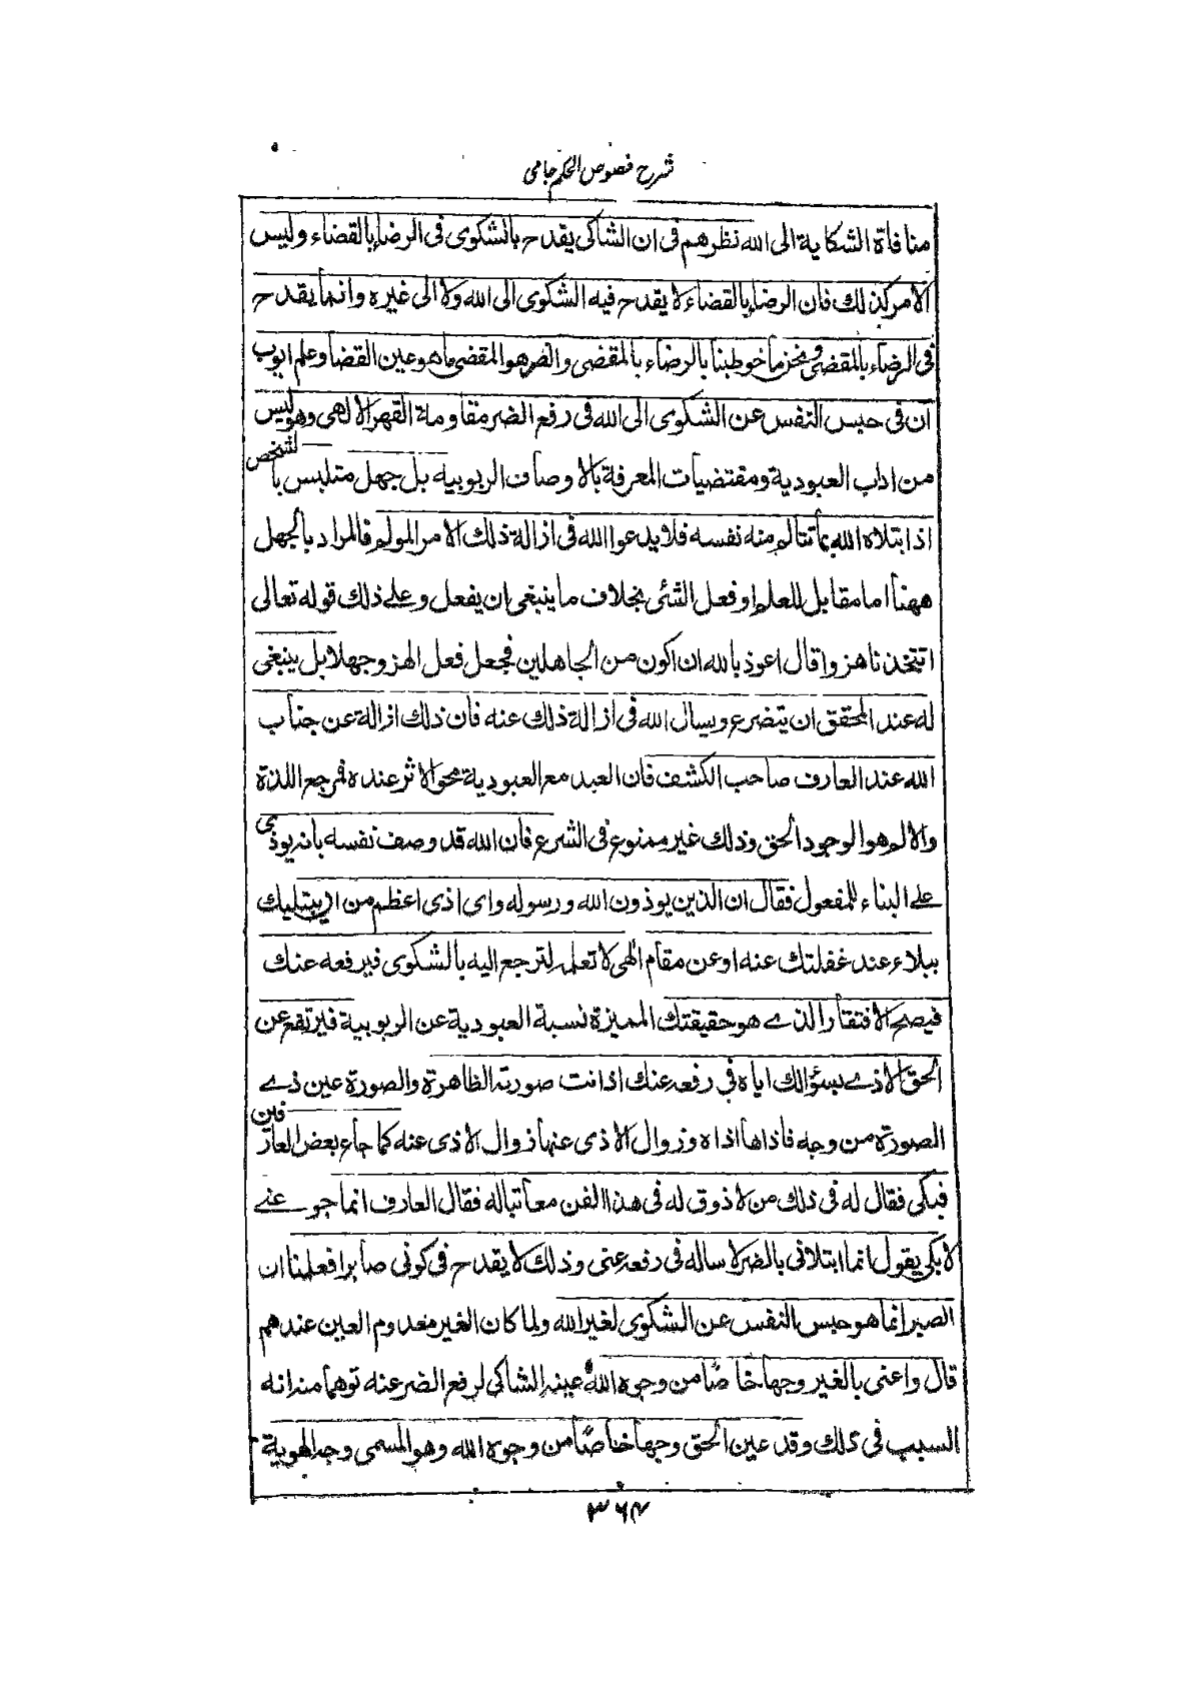 شرح فصوص الحکم جامی
منافاة الشكاية الى الله نظرهم فى ان الشاكى يقدح بالشكوى فى الرضاء بالقضاء وليس
الامر كذلك فان الرضاء بالقضاء لا يقدح فيه الشكوى الى الله ولا الى غيره وانما يقدح
فى الرضاء بالمقضى ونحن ما خوطبنا بالرضاء بالمقضى والضر هو المقضى ما هو عين القضا وعلم ايوب
ان فى حبس النفس عن الشكوى الى الله فى رفع الضر مقاومة القهر الالهى وهو ليس
من اداب العبودية ومقتضيات المعرفة بالاوصاف الربوبيه بل جهل متلبس بالشخص
اذا ابتلاه الله بما تتالم منه نفسه فلا يدعوا الله فى ازالة ذلك الامر المولم فالمراد بالجهل
ههنا اما مقابل للعلم او فعل الشئ بخلاف ما ينبغى ان يفعل وعلے ذلك قوله تعالى
اتتخذنا هزوا قال اعوذ بالله ان اكون من الجاهلين فجعل فعل الهزو جهلا بل ينبغى
له عند المحقق ان يتضرع ويسال الله فى ازالة ذلك عنه فان ذلك ازالة عن جناب
الله عند العارف صاحب الكشف فان العبد مع العبودية محو الاثر عنده فمرجع اللذة
والالم هو الوجود الحق وذلك غير ممنوع فى الشرع فان الله قد وصف نفسه بانه يوذى
علے البناء للمفعول فقال ان الذين يوذون الله ورسوله واى اذى اعظم من ان يبتليك
ببلاء عند غفلتك عنه او عن مقام الهى لا تعلمه لترجع اليه بالشكوى فيرفعه عنك
فيصح الافتقار الذے هو حقيقتك المميزة نسبة العبودية عن الربوبية فيرتفع عن
الحق الاذے بسؤالك اياه فى رفعه عنك اذ انت صورته الظاهرة والصورة عين ذے
الصورة من وجه فاذاها اذاه وزوال الاذى عنها زوال الاذى عنه كما جاع بعض العارفين
فبكى فقال له فى ذلك من لا ذوق له فى هذا الفن معاتبا له فقال العارف انما جوعنے
لابكى يقول انما ابتلانى بالضر لاساله فى رفعه عنى وذلك لا يقدح فى كونى صابرا فعلمنا ان
الصبر انما هو حبس النفس عن الشكوى لغير الله ولما كان الغير معدوم العين عندهم
قال واعنى بالغير وجها خاصًا من وجوه الله عينه الشاكى لرفع الضر عنه توهما منه انه
السبب فى ذلك وقد عين الحق وجها خاصًا من وجوه الله وهو المسمى وجه الهوية
۳۶۴